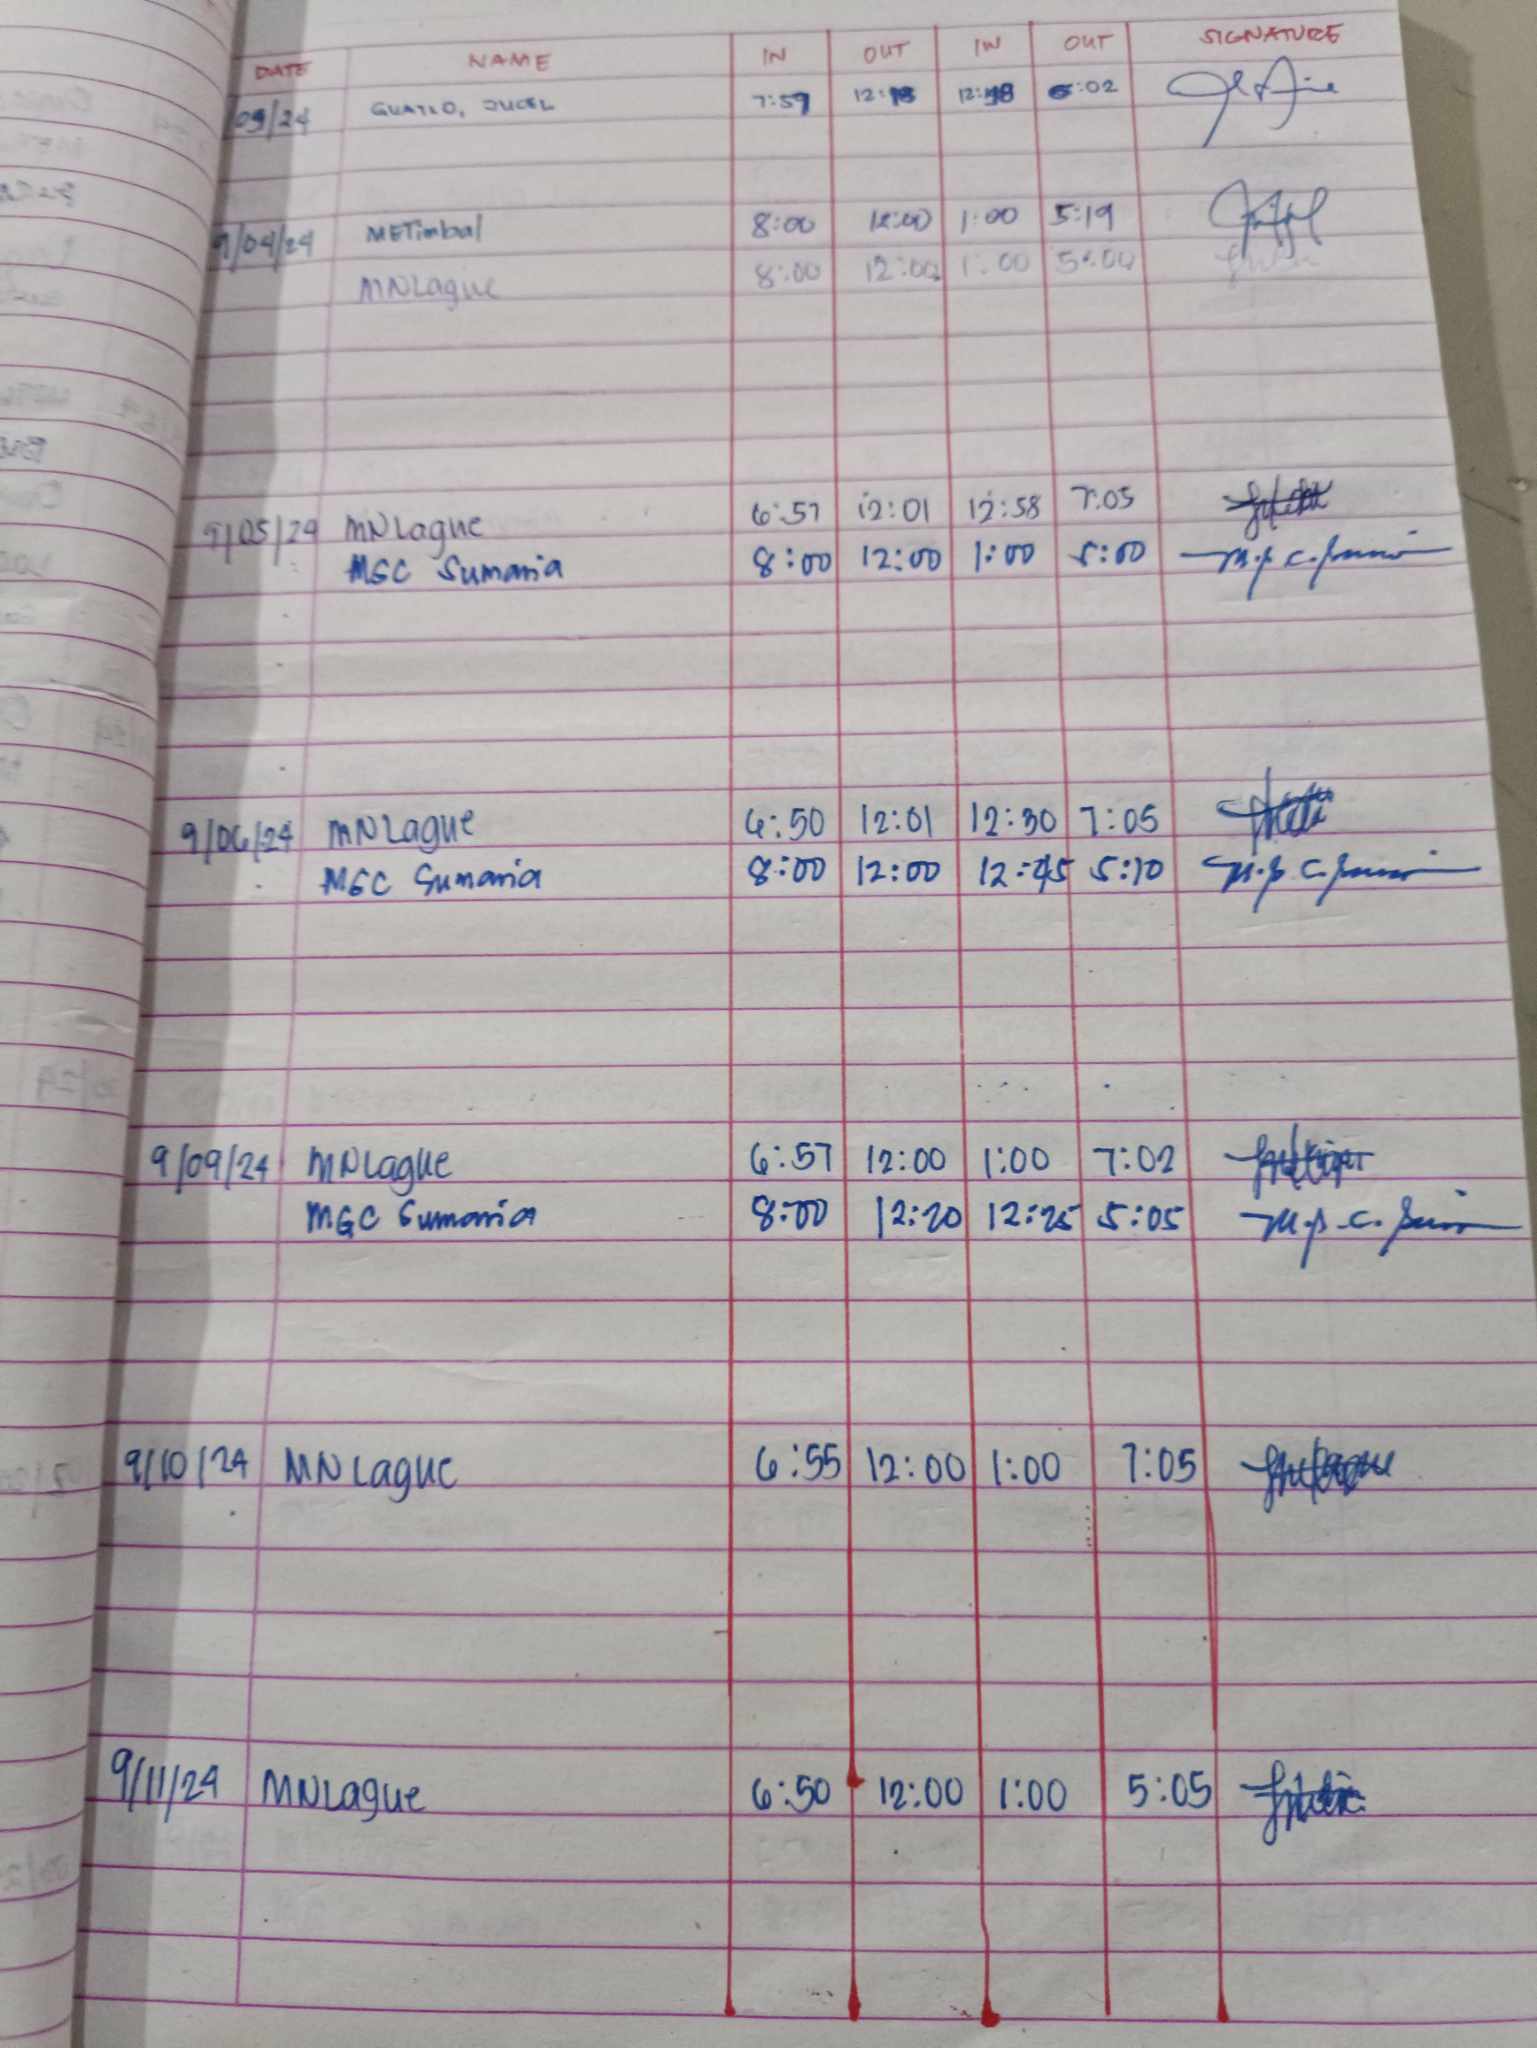 DATE NAME IN OUT IN OUT SIGNATURE
/09/24 7:59
9/04/24 METimbal 8:00 12:00 1:00 5:19
MNLague 8:00 12:00 1:00 5:00
9/05/24 MNLague 6:57 12:01 12:58 7:05
MGC Sumania 8:00 12:00 1:00 5:00
9/06/24 MNLague 6:50 12:01 12:30 7:05
MGC Sumania 8:00 12:00 12:45 5:10
9/09/24 MNLague 6:57 12:00 1:00 7:02
MGC Sumania 8:00 12:20 12:25 5:05
9/10/24 MNLague 6:55 12:00 1:00 7:05
9/11/24 MNLague 6:50 12:00 1:00 5:05